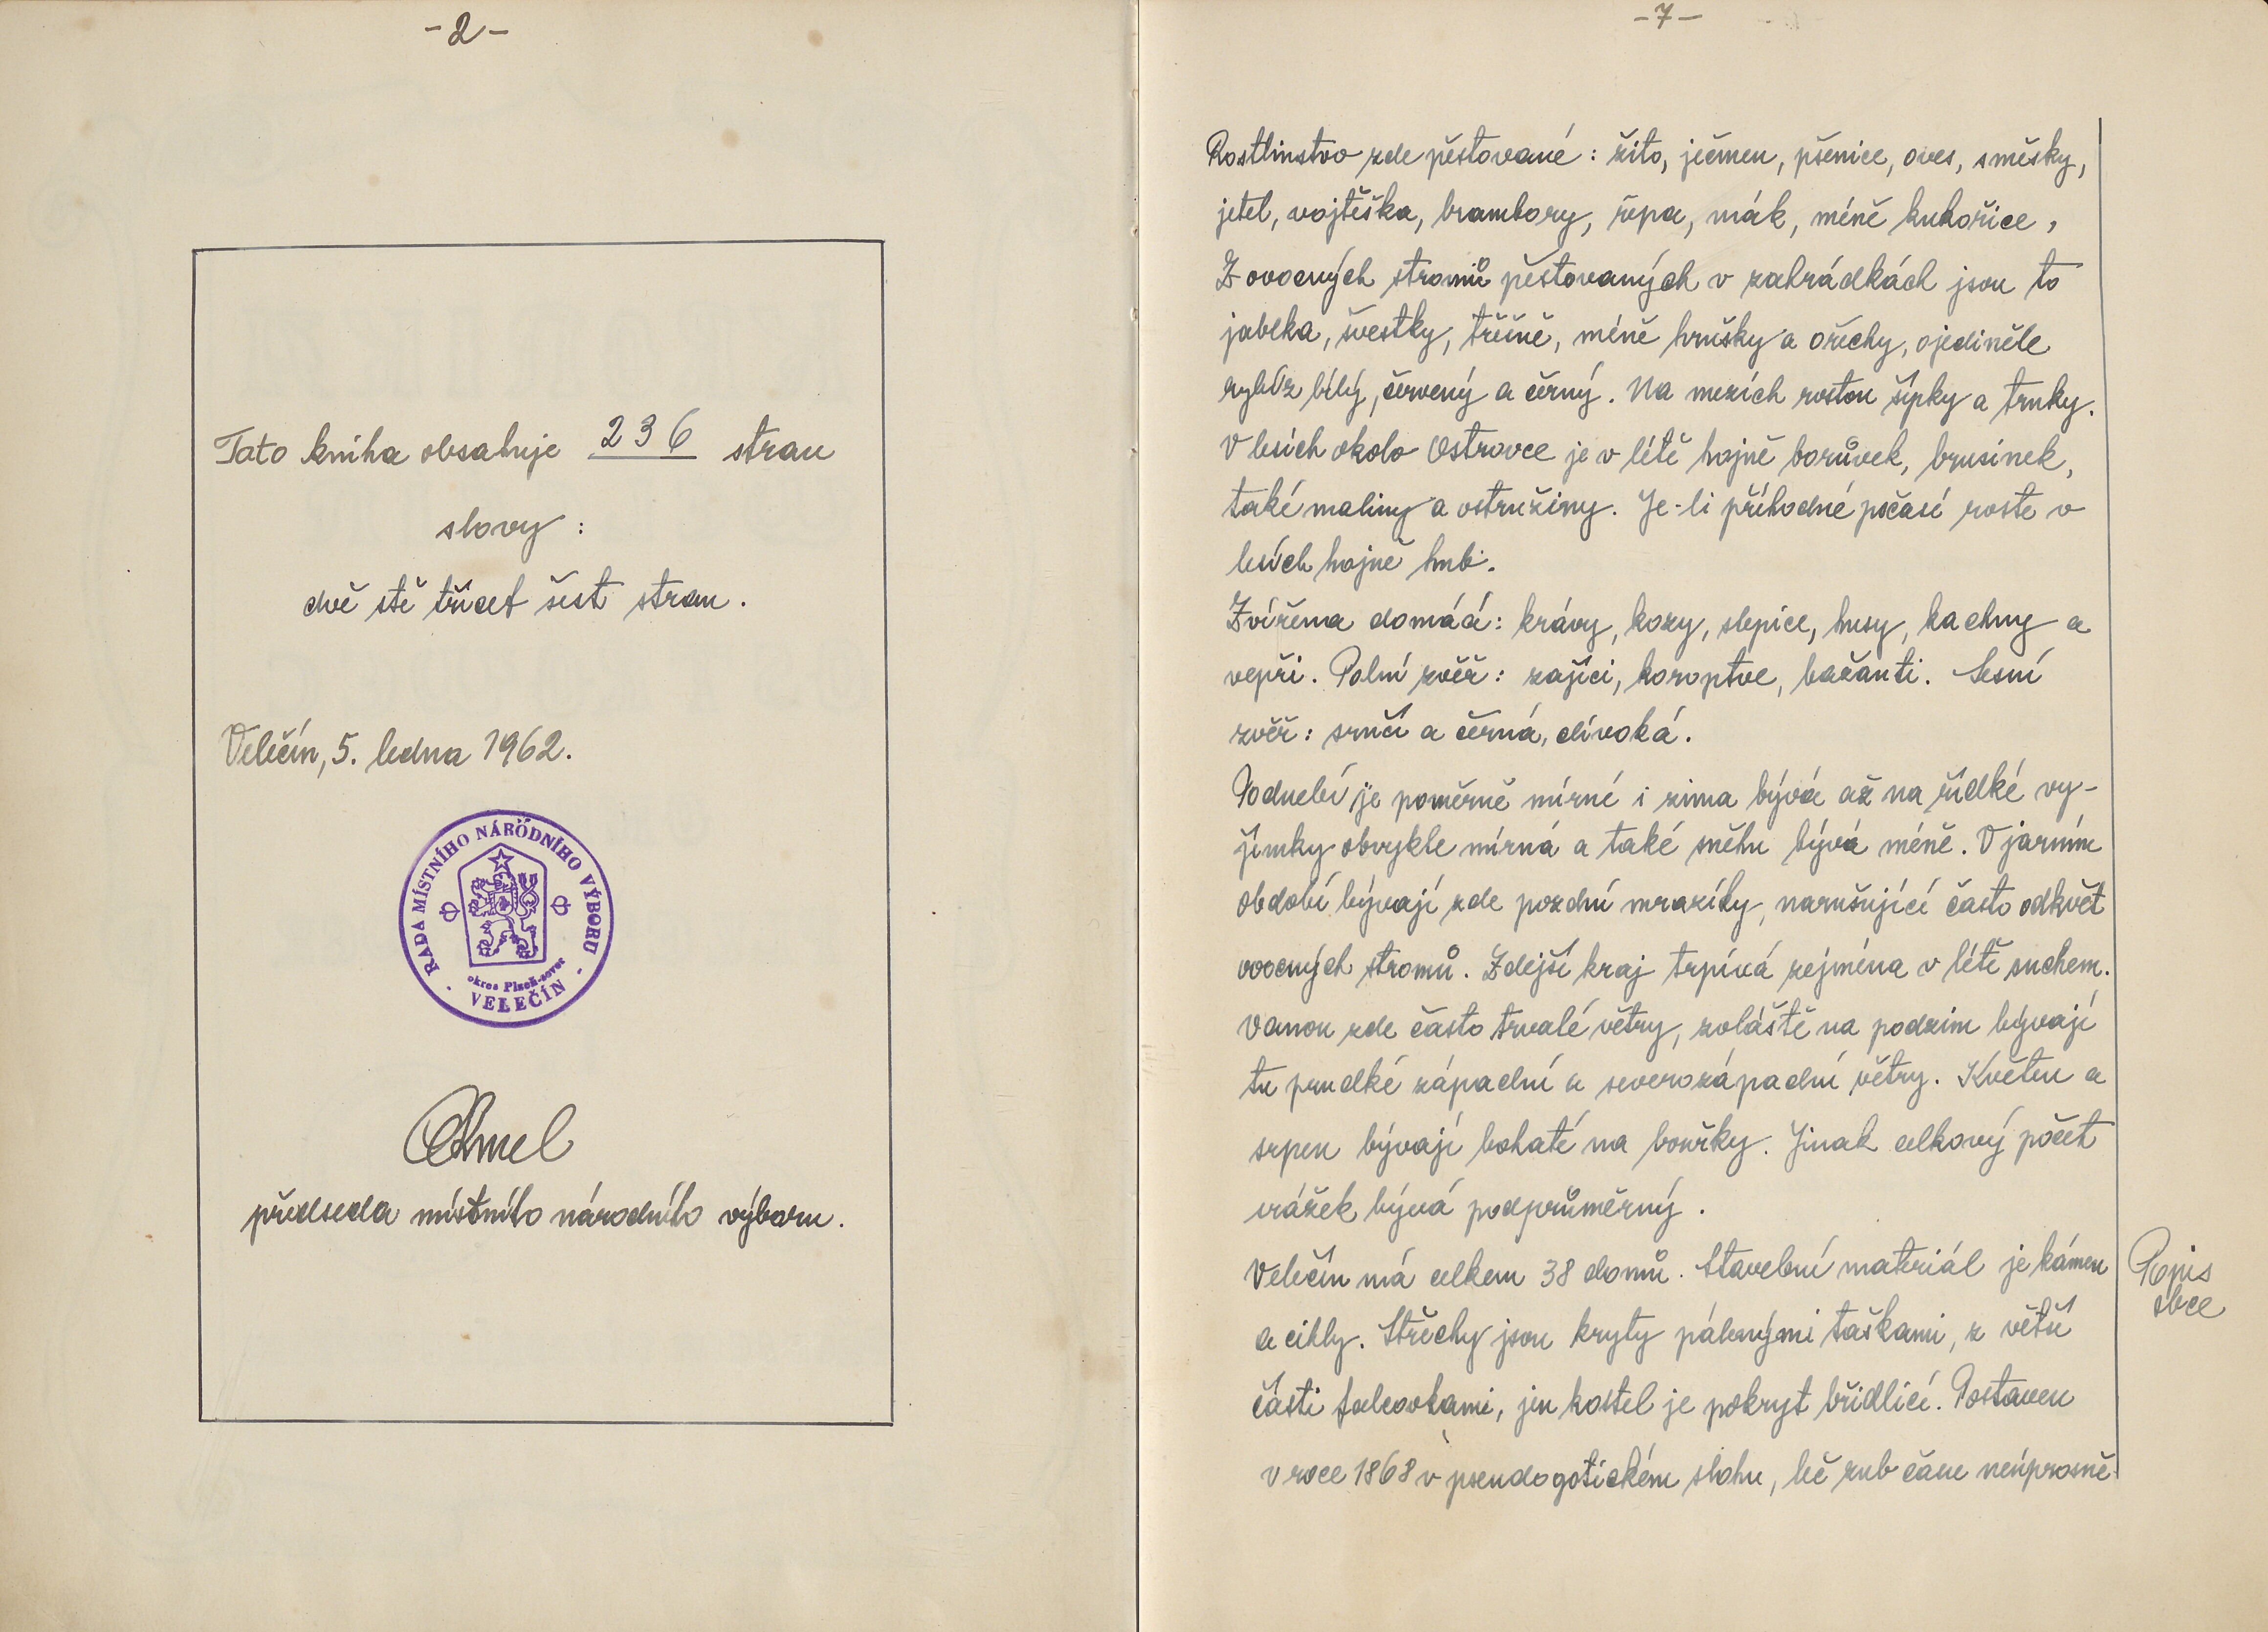 -2-
Tato kniha obsahuje 236 stran
slovy:
dvě stě třicet šest stran.
Velečín, 5. ledna 1962.
RADA MÍSTNÍHO NÁRODNÍHO VÝBORU
okres Plzeň-sever
VELEČÍN
předseda místního národního výboru.
-7-
Rostlinstvo zde pěstované: žito, ječmen, pšenice, oves, směsky,
jetel, vojtěška, brambory, řepa, mák, méně kukořice,
Z ovocných stromů pěstovaných v zahrádkách jsou to
jablka, švestky, třešně, méně hrušky a ořechy, ojediněle
rybíz bílý, červený a černý. Na mezích rostou šípky a trnky.
V lesích okolo Ostrovce je v létě hojně borůvek, brusinek,
také maliny a ostružiny. Je-li příhodné počasí roste v
lesích hojně hub.
Zvířena domácí: krávy, kozy, slepice, husy, kachny a
vepři. Polní zvěř: zajíci, koroptve, bažanti. Lesní
zvěř: srnčí a černá, divoká.
Podnebí je poměrně mírné i zima bývá až na řídké vy-
jímky obvykle mírná a také sněhu bývá méně. V jarním
období bývají zde pozdní mrazíky, narušující často odkvět
ovocných stromů. Zdejší kraj trpívá zejména v létě suchem.
Vanou zde často trvalé větry, zvláště na podzim bývají
tu prudké západní a severozápadní větry. Květen a
srpen bývají bohaté na bouřky. Jinak celkový počet
srážek bývá podprůměrný.
Velečín má celkem 38 domů. Stavební materiál je kámen
a cihly. Střechy jsou kryty pálenými taškami, z větší
části falcovkami, jen kostel je pokryt břidlicí. Postaven
v roce 1868 v pseudogotickém slohu, leč zub času neúprosně
Popis
obce